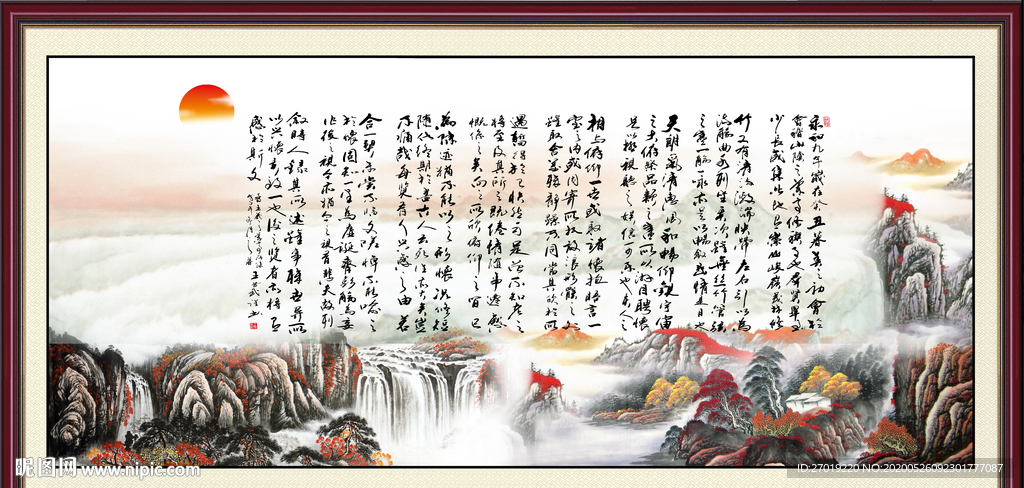 永和九年歲在癸丑暮春之初會於
會稽山陰之蘭亭脩禊事也羣賢畢至
少長咸集此地有崇山峻嶺茂林脩
竹又有清流激湍映帶左右引以為
流觴曲水列坐其次雖無絲竹管弦
之盛一觴一詠亦足以暢敘幽情是日也
天朗氣清惠風和暢仰觀宇宙
之大俯察品類之盛所以遊目騁懷
足以極視聽之娛信可樂也夫人之
相與俯仰一世或取諸懷抱晤言一
室之內或因寄所託放浪形骸之外
雖取舍萬殊靜躁不同當其欣於所
遇暫得於己快然自足不知老之
將至及其所之既倦情隨事遷感
慨係之矣向之所欣俯仰之間已
為陳迹猶不能不以之興懷況脩短
隨化終期於盡古人云死生亦大矣豈
不痛哉每覽昔人興感之由若
合一契未嘗不臨文嗟悼不能喻之
於懷固知一死生為虛誕齊彭殤為妄
作後之視今亦猶今之視昔悲夫故列
敘時人錄其所述雖世殊事異所
以興懷其致一也後之覽者亦將有
感於斯文
昵图网 www.nipic.com
ID:27019220 NO:20200526092301777087